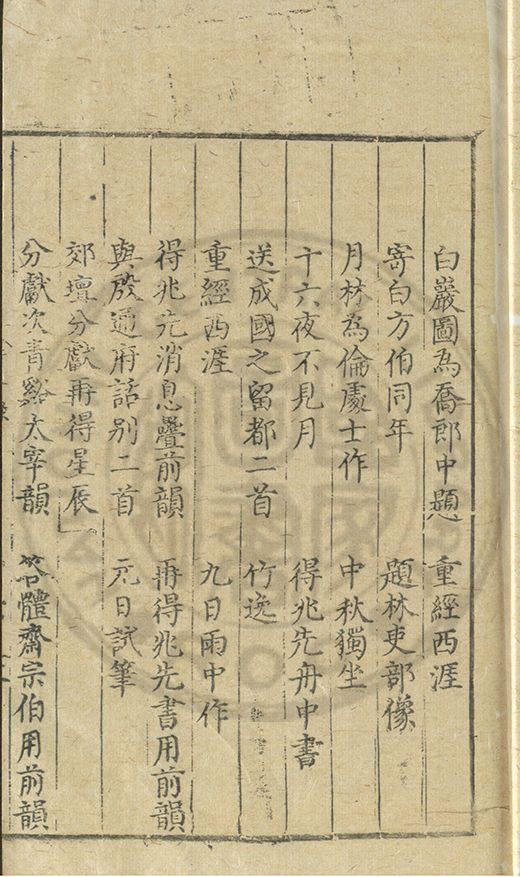 白巖圖為喬郎中題　重經西涯
寄白方伯同年　題林吏部像
月林為倫處士作　中秋獨坐
十六夜不見月　得兆先舟中書
送成國之留都二首　竹逸
重經西涯　九日雨中作
得兆先消息疊前韻　再得兆先書用前韻
與殷通府話別二首　元日試筆
郊壇分獻再得星辰一
分獻次青谿太宰韻　答體齋宗伯用前韻